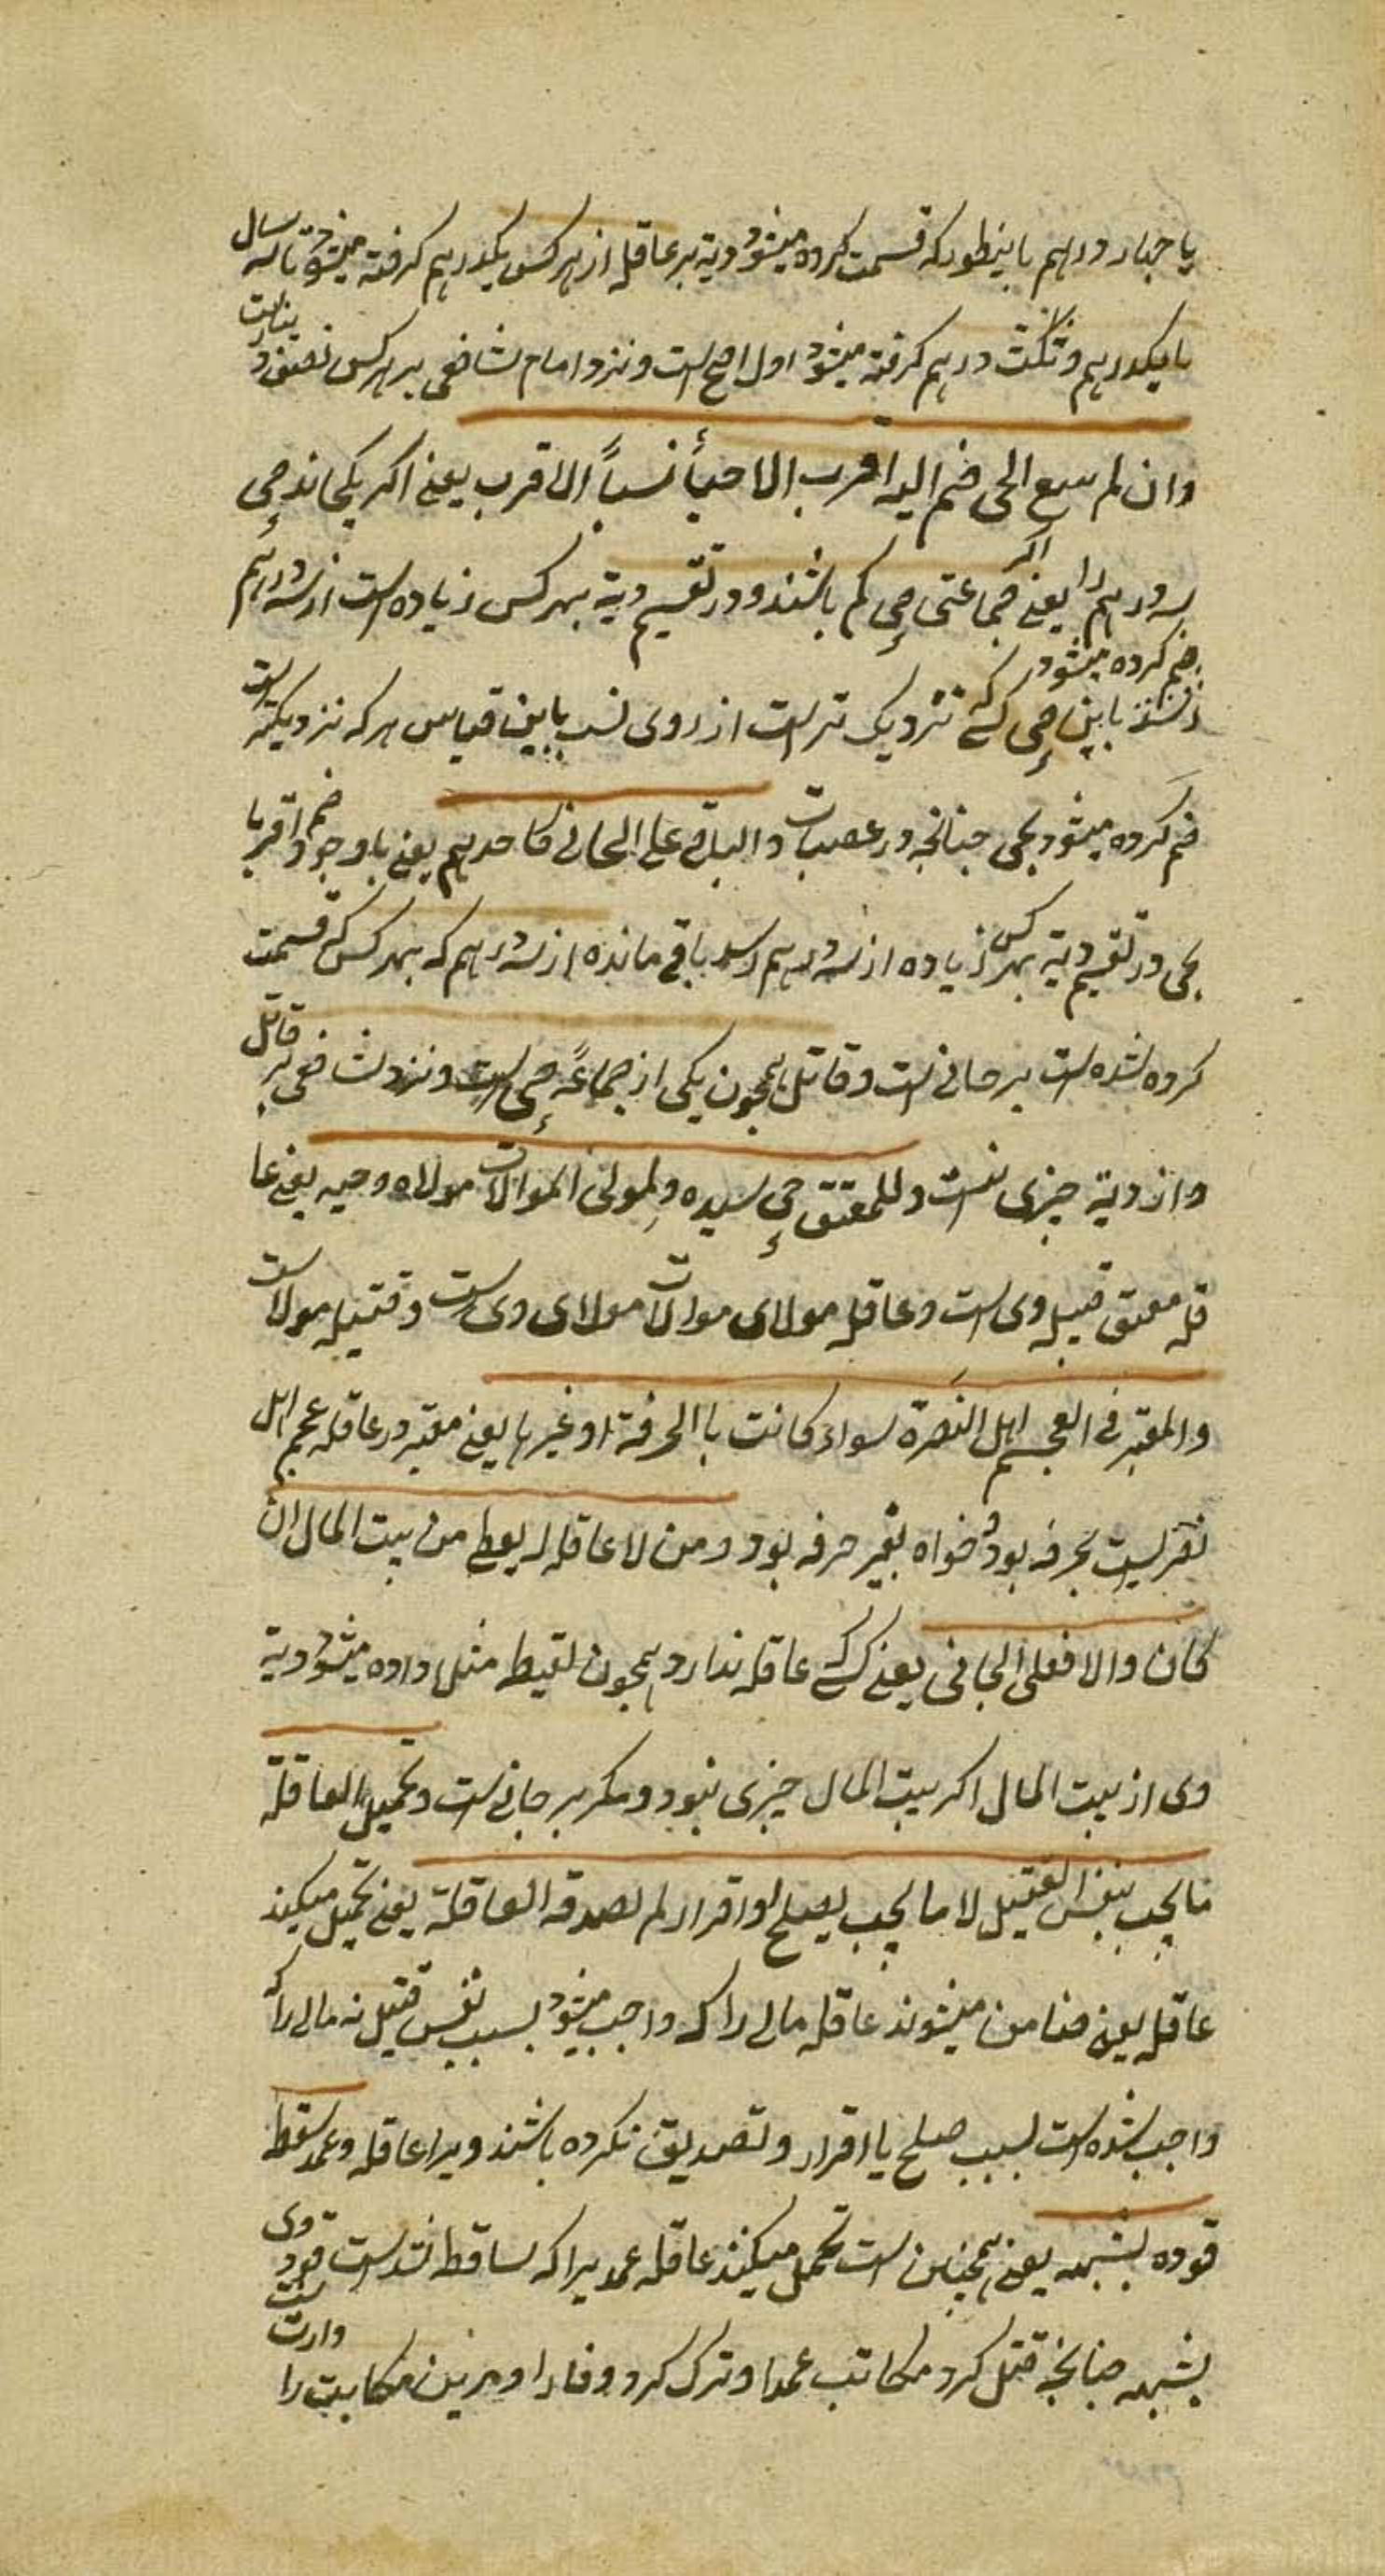 یا چهار درهم باینطور که قسمت کرده میشود دیة بر عاقله از هر کس یکدرهم کرفته میشود تا سه سال
یا یکدرهم و ثلث درهم کرفته میشود اول اصح است و نزد امام شافعی بر هر کس نصف دینار است
وان لم یسع الحی ضم الیه اقرب الاحیأ نسباً الاقرب یعنی اکر نکنجاند حی
سه درهم را یعنی اکر جماعتی حی کم باشند و در تقسیم دیة بهر کس زیاده است از سه درهم
ضم کرده میشود باین حی کسی که نزدیک تر است از روی نسب باین قیاس هر که نزدیکتر است
ضم کرده میشود بحی چنانچه در عصبات والباقی علی الجانی کاحدهم یعنی باوجود ضم اقربا
بحی در تقسیم دیة بهر کس زیاده از سه درهم رسد باقی مانده از سه درهم که بهر کس قسمت
کرده شده است بر جانی است و قاتل همچون یکی از جماعة حی است و نزد شافعی بر قاتل
و از دیة چیزی نیست وللمعتق حی سیده ولمولی الموالات مولاه وحیه یعنی عا
قله معتق قبیله وی است و عاقله مولای موالات مولای وی است و قبیله مولا است
والمعتبر فی العجم اهل النصرة سواء کانت باالحرفة او غیرها یعنی معتبر در عاقله عجم اهل
نصر است بحرفه بود و خواه بغیر حرفه بود ومن لا عاقله له یعطی من بیت المال ان
کان والا فعلی الجانی یعنی کسی که عاقله ندارد همچون لقیط مثلا داده میشود دیة
وی از بیت المال اکر بیت المال چیزی نبود و مکر بر جانی است وتحمیل العاقلة
مایجب بنفس القتیل لا مایجب بصلح او اقرار لم تصدقه العاقلة یعنی تحمیل میکند
عاقله یعنی ضامن میشوند عاقله مالی را که واجب میشود بسبب نفس قتیل نه مالی را که
واجب شده است بسبب صلح یا اقرار و تصدیق نکرده باشند ویرا عاقله وعمد سقط
قوده بشبهه یعنی همچنین است تحمل میکنند عاقله عمدیرا که ساقط شد است قود وی
بشبهه چنانچه قتل کرد مکاتب عمدا و ترک کرد وفا را و مر بدین مکاتبت را وارث است